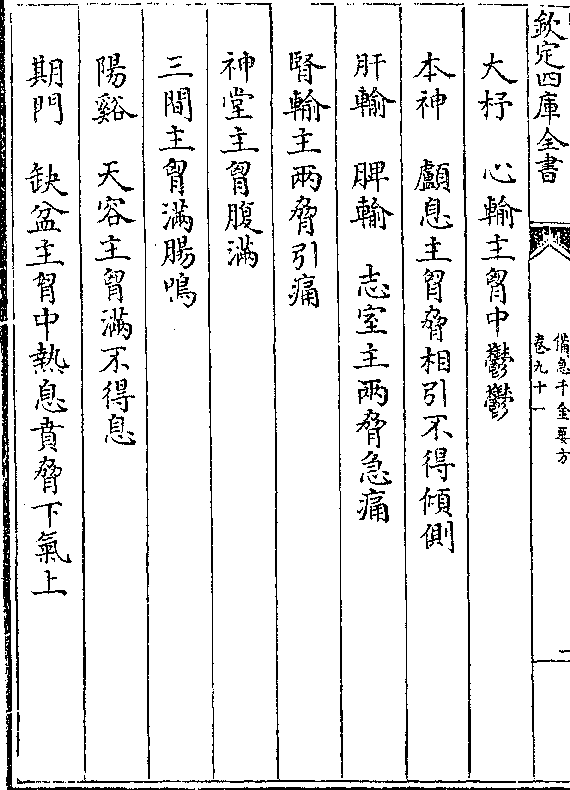 欽定四庫全書
備急千金要方
卷九十一
二
大杼　心輸主胷中鬱鬱
本神　顱息主胷脅相引不得傾側
肝輸　脾輸　志室主兩脅急痛
腎輸主兩脅引痛
神堂主胷腹滿
三間主胷滿腸鳴
陽谿　天容主胷滿不得息
期門　缺盆主胷中熱息賁脅下氣上